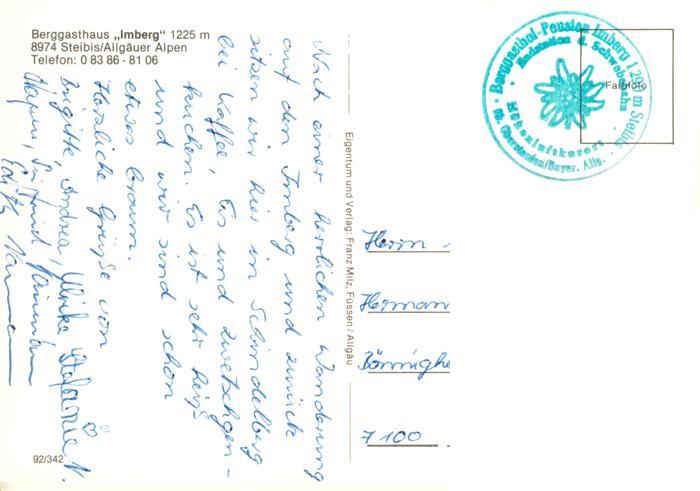 Berggasthaus „Imberg" 1225 m
8974 Steibis/Allgäuer Alpen
Telefon: 0 83 86 - 81 06
Nach einer herrlichen Wanderung
auf den Imberg und zurück
sitzen wir hier in Schindelberg
bei Kaffee, Eis und Zwetschgen-
kuchen. Es ist sehr heiß
und wir sind schon
etwas braun.
Herzliche Grüße von
Brigitte, Andrea, Ulrike Stefanie N.
Edith
92/342
Eigentum und Verlag: Franz Milz, Füssen / Allgäu
Berggasthof-Pension Imberg
m Steibis
Endstation d. Schwebebahn
Höhenluftkurort
Bb. Oberstaufen/Bayer. Allg.
Herrn
Herman
Bönnighe
7100